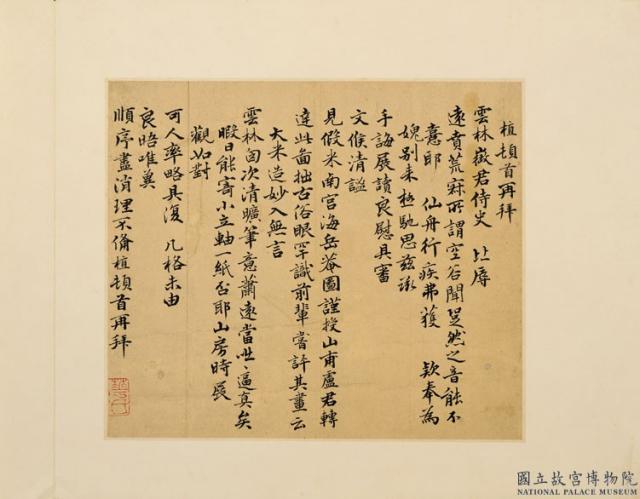 植頓首再拜
雲林徵君侍史 比辱
遠賁荒寂所謂空谷聞跫然之音能不
意耶 仙舟行疾弗獲 欵奉為
媿別來極馳思茲承
手誨展讀良慰具審
文候清謐
見假米南宮海岳菴圖謹授山甫盧君轉
達此畫拙古俗眼罕識前輩嘗評其畫云
大米造妙入無言
雲林匈次清曠筆意蕭遠當咄咄逼真矣
暇日能寄小立軸一紙否耶山房時展
觀如對
可人率略具復 几格未由
良晤唯冀
順序盡消理不備植頓首再拜
國立故宮博物院
NATIONAL PALACE MUSEUM